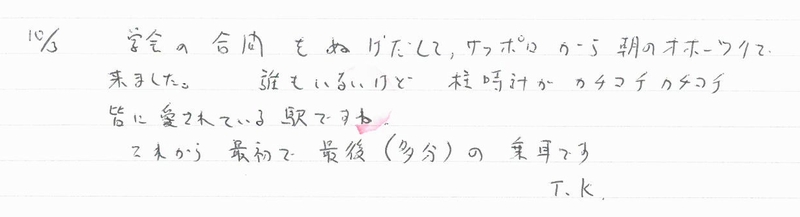 10/3 学会の合間をぬけだして,サッポロから朝のオホーツクで
来ました。 誰もいないけど 柱時計がカチコチカチコチ
皆に愛されている駅ですね.
これから最初で最後(多分)の乗車です
T.K.